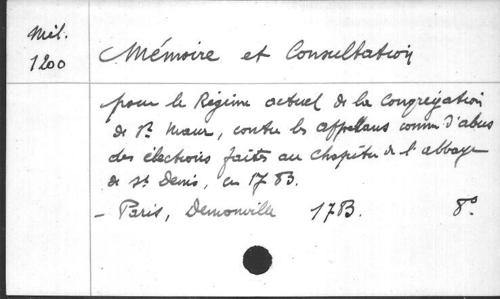 Mil.
1200
Mémoire et Consultation
pour le Régime actuel de la Congrégation
de St Maur, contre les appellans comme d'abus
des élections faites au chapitre de l'abbaye
de St Denis, en 1783.
- Paris, Demonville 1783. 8°